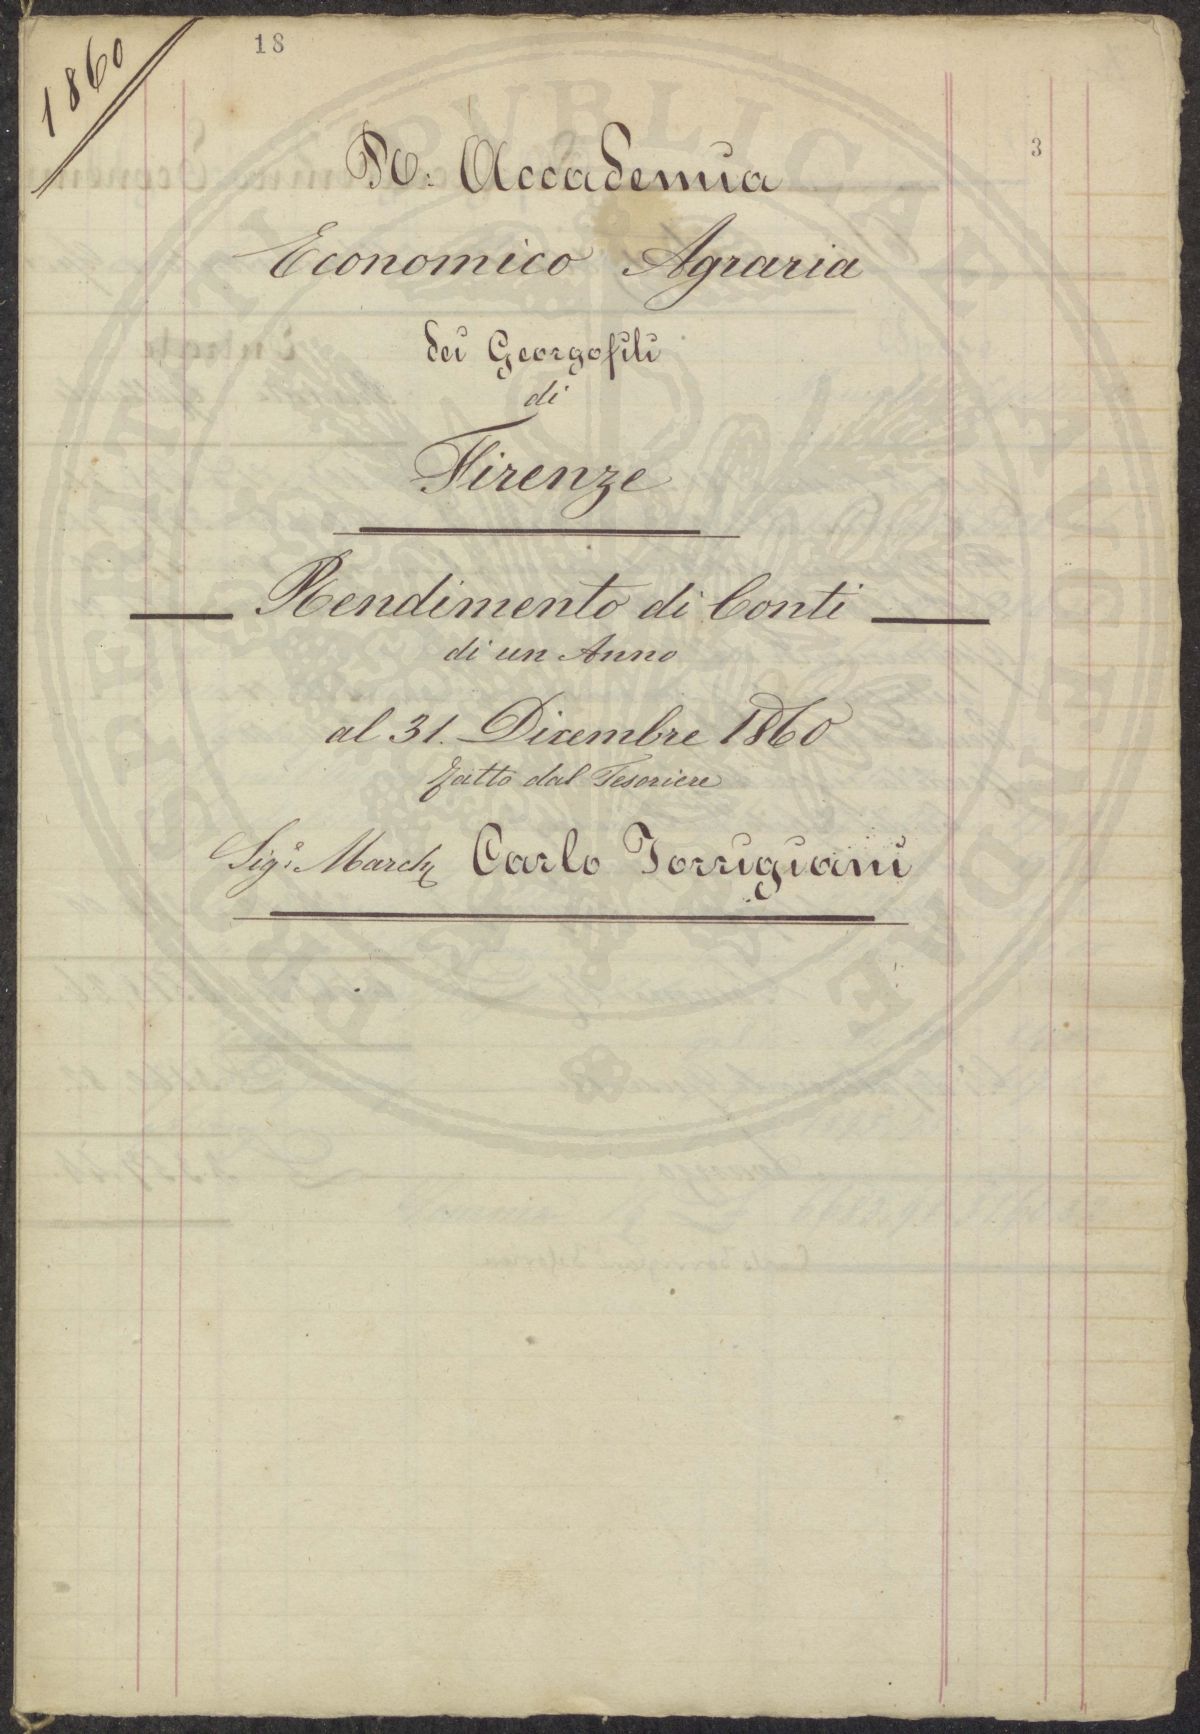 1860
18
3
R: Accademia
Economico Agraria
dei Georgofili
di
Firenze
Rendimento di Conti
di un Anno
al 31. Dicembre 1860
fatto dal Tesoriere
Sigr. March Carlo Torrigiani
PROSPERITATI PUBLICAE AUGENDAE